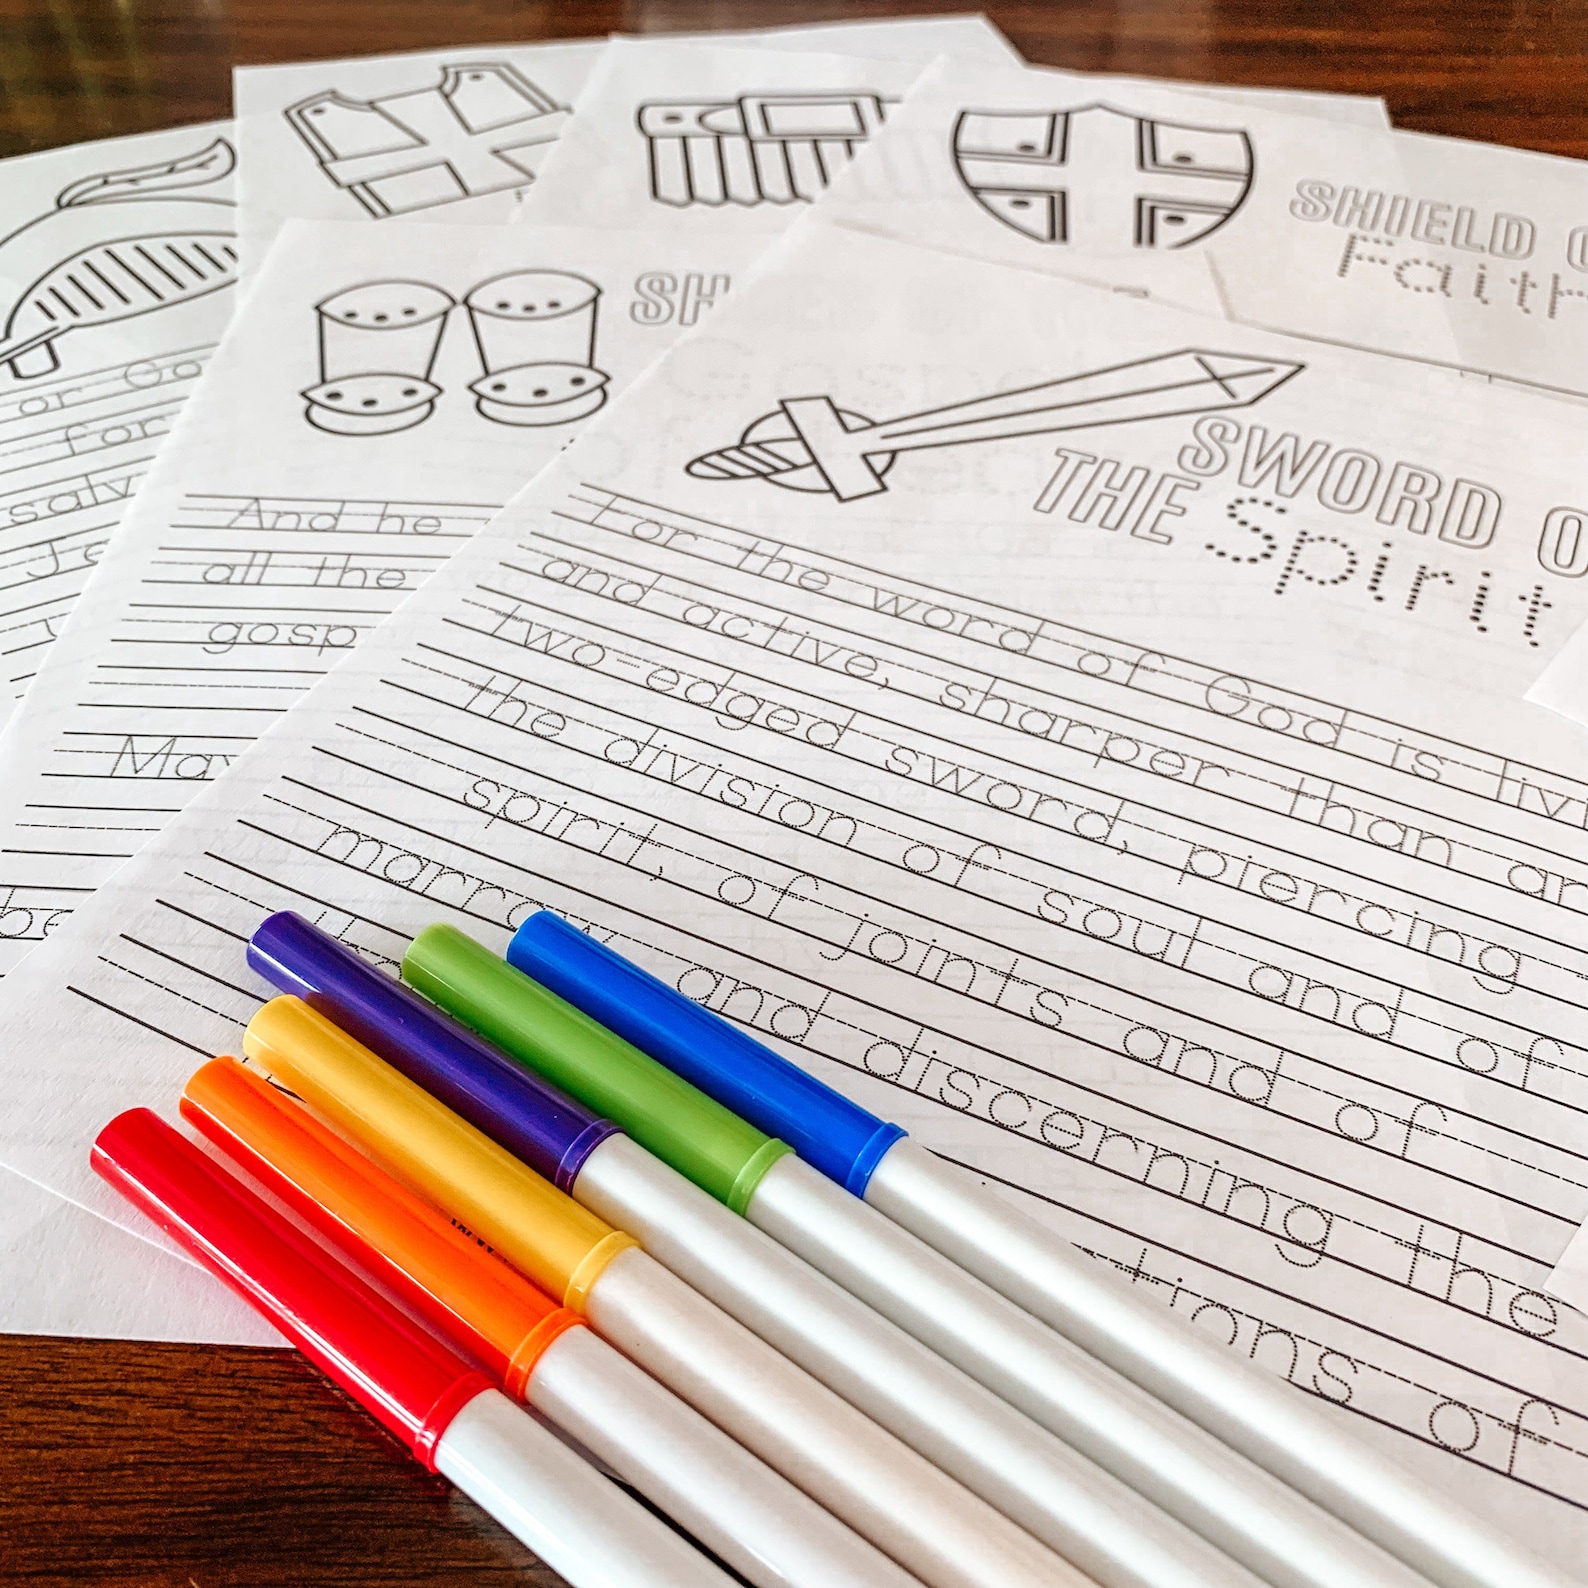 SHIELD
Faith
or
for
salv
SH
And he
all the
gosp
May
be
SWORD
THE Spirit
For the word of God is livi
and active, sharper than an
two-edged sword, piercing
the division of soul and of
spirit, of joints and of
marrow and discerning the
tions of